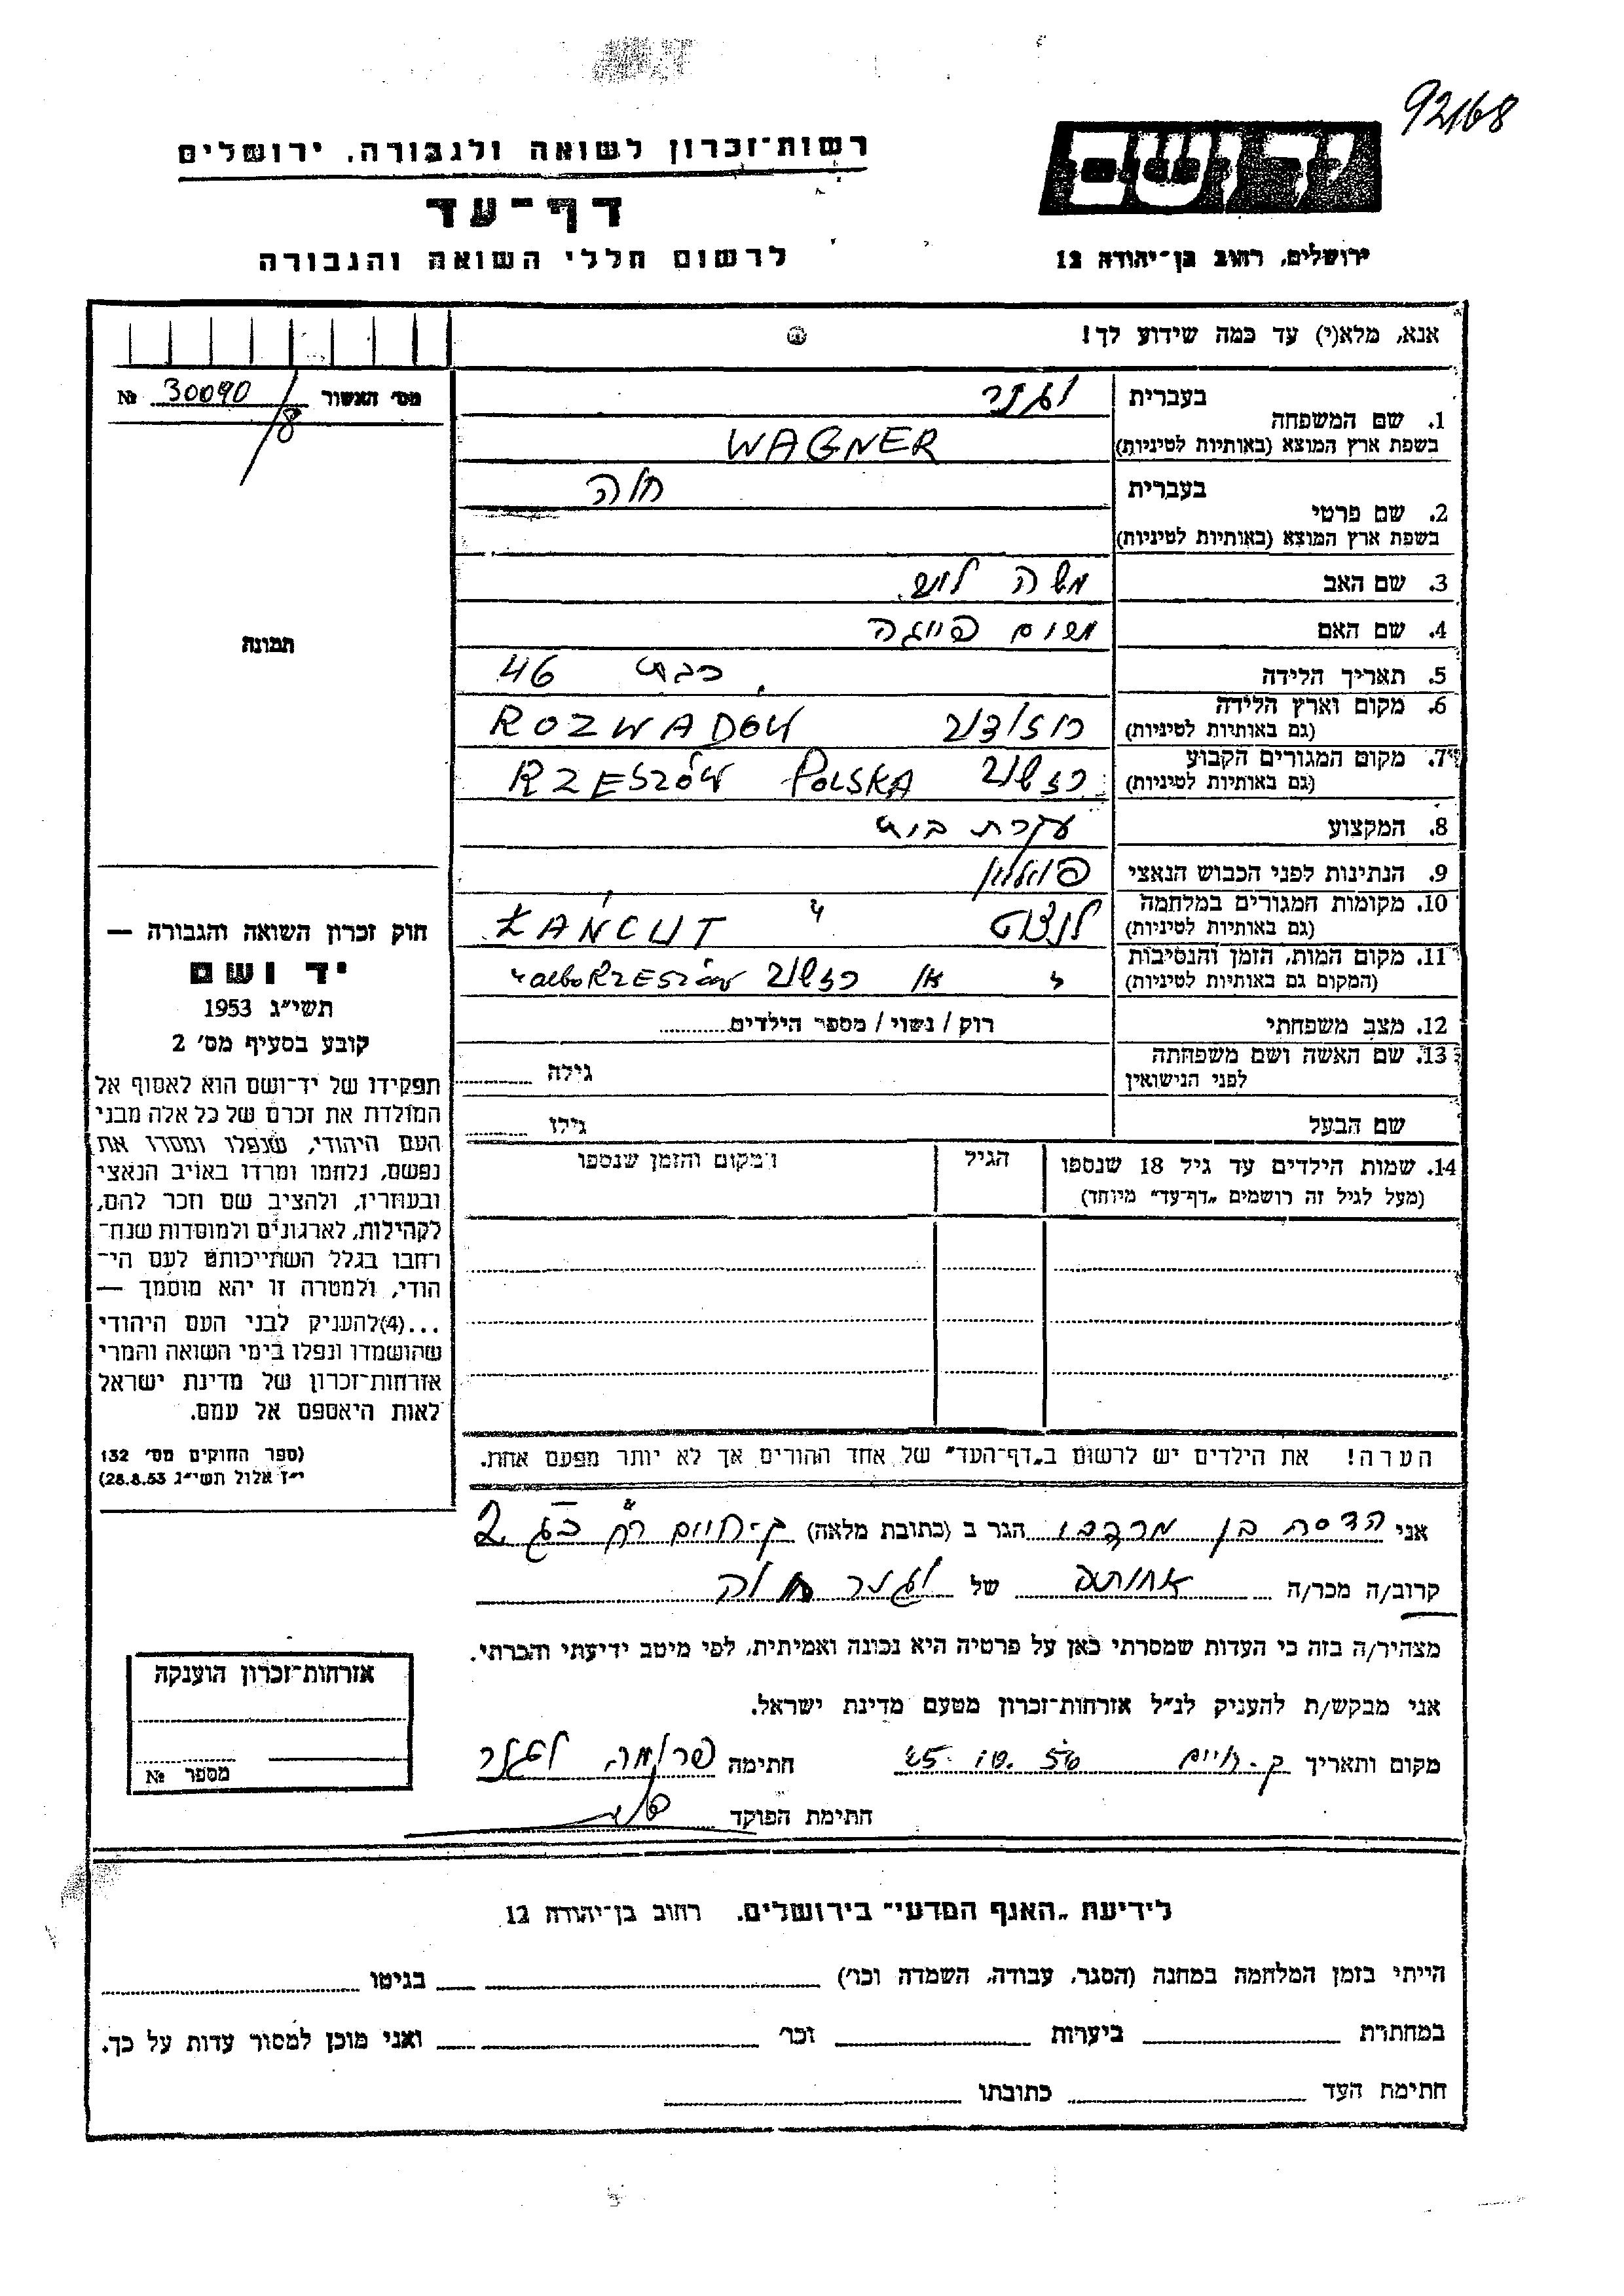 92/68
רשות־זכרון לשואה ולגבורה, ירושלים
דף־עד
לרשום חללי השואה והגבורה
יד ושם
ירושלים, רחוב בן־יהודה 12
אנא, מלא(י) עד כמה שידוע לך!
מס׳ האשור 30090 №
/8
1. שם המשפחה
בעברית
וגנר
בשפת ארץ המוצא (באותיות לטיניות)
WAGNER
2. שם פרטי
בעברית
חוה
בשפת ארץ המוצא (באותיות לטיניות)
3. שם האב משה
4. שם האם מרים פייגה
5. תאריך הלידה 46
6. מקום וארץ הלידה
(גם באותיות לטיניות)
רוזודוב ROZWADÓW
7. מקום המגורים הקבוע
(גם באותיות לטיניות)
רזשוב RZESZÓW POLSKA
8. המקצוע עקרת בית
9. הנתינות לפני הכבוש הנאצי פולין
10. מקומות המגורים במלחמה
(גם באותיות לטיניות)
לנצוט ŁAŃCUT
11. מקום המות, הזמן והנסיבות
(המקום גם באותיות לטיניות)
או רזשוב albo RZESZÓW
12. מצב משפחתי
רוק / נשוי / מספר הילדים
13. שם האשה ושם משפחתה
לפני הנישואין
גילה
שם הבעל
גילו
14. שמות הילדים עד גיל 18 שנספו
(מעל לגיל זה רושמים „דף־עד״ מיוחד)
הגיל
המקום והזמן שנספו
הערה! את הילדים יש לרשום ב„דף־העד״ של אחד ההורים אך לא יותר מפעם אחת.
תמונה
חוק זכרון השואה והגבורה —
יד ושם
תשי״ג 1953
קובע בסעיף מס׳ 2
תפקידו של יד־ושם הוא לאסוף אל
המולדת את זכרם של כל אלה מבני
העם היהודי, שנפלו ומסרו את
נפשם, נלחמו ומרדו באויב הנאצי
ובעוזריו, ולהציב שם וזכר להם,
לקהילות, לארגונים ולמוסדות שנח־
רחבו בגלל השתייכותם לעם הי־
הודי, ולמטרה זו יהא מוסמך —
...(4)להעניק לבני העם היהודי
שהושמדו ונפלו בימי השואה והמרי
אזרחות־זכרון של מדינת ישראל
לאות היאספם אל עמם.
(ספר החוקים מס׳ 132
י״ז אלול תשי״ג 28.8.53)
אני הדסה בן מרדכי הגר ב (כתובת מלאה) ק־חיים רח 2
קרוב/ה מכר/ה אחותה של וגנר חוה
מצהיר/ה בזה כי העדות שמסרתי כאן על פרטיה היא נכונה ואמיתית, לפי מיטב ידיעתי והכרתי.
אני מבקש/ת להעניק לנ״ל אזרחות־זכרון מטעם מדינת ישראל.
מקום ותאריך ק. חיים 25.10.56 חתימה וגנר
חתימת הפוקד
אזרחות־זכרון הוענקה
מספר №
לידיעת „האגף המדעי״ בירושלים, רחוב בן־יהודה 12
הייתי בזמן המלחמה במחנה (הסגר, עבודה, השמדה וכו׳) בגיטו
במחתרת ביערות וכו׳ ואני מוכן למסור עדות על כך.
חתימת העד כתובתו